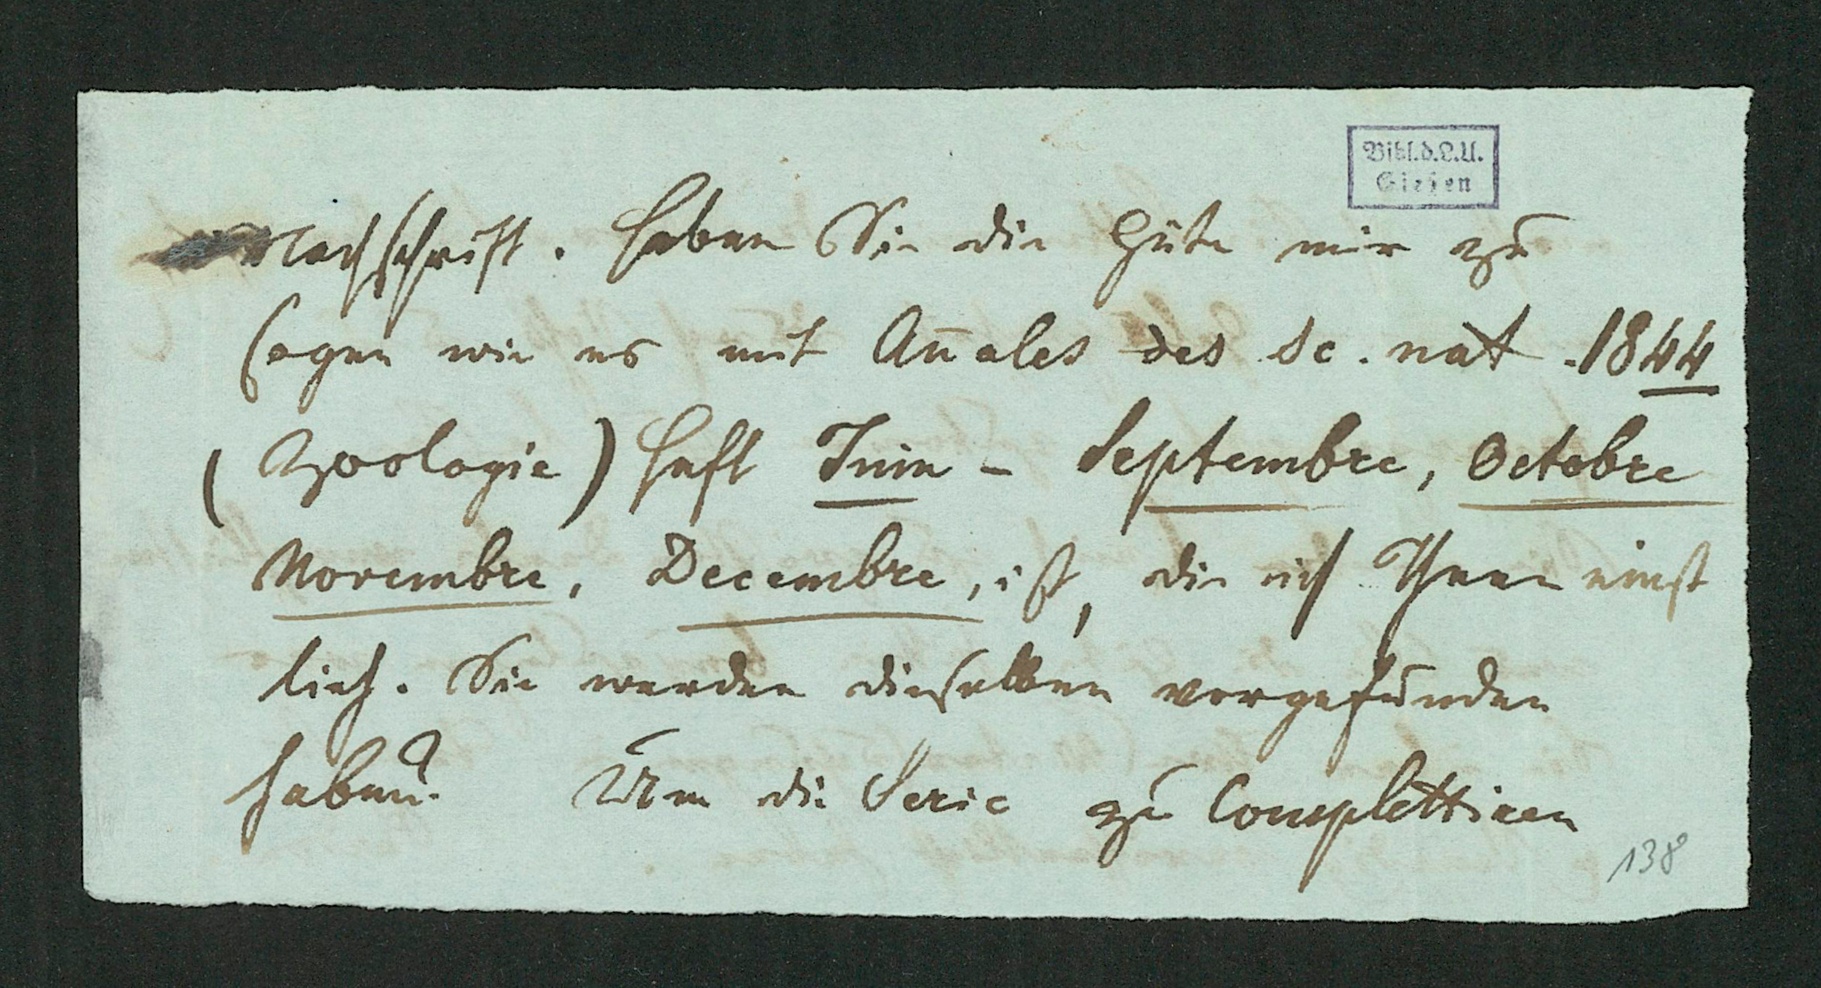 Bibl.d.L.U.
Gießen
Nachschrift. Haben Sie die Güte mir zu
sagen wie es mit An̄ales des sc. nat. 1844
(Zoologie) Heft Juin - Septembre, Octobre
Novembre, Decembre, ist, die ich Ihnen einst
lieh. Sie werden dieselben vorgefunden
haben? Um die Serie zu Complettiren
138